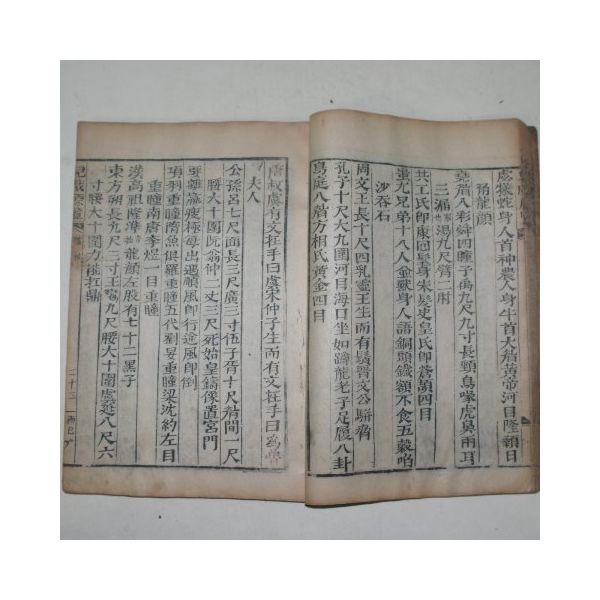 虙犧蛇身人首神農人身牛首大眉黃帝河目隆顙日
角龍顏
堯眉八彩舜四瞳子禹九尺九寸長頸鳥喙虎鼻兩耳
三漏湯九尺臂二肘
共工氏卽康回髯身朱髮史皇氏卽蒼頡四目
蚩尤兄弟十八人金獸身人語銅頭鐵額不食五穀啗
沙吞石
周文王長十尺四乳靈王生而有鬚晉文公騈脅
孔子十尺大九圍河目海口坐如蹲龍老子足履八卦
鳥庭八眉方相氏黃金四目
唐叔虞有文在手曰虞宋仲子生而有文在手曰爲魯
夫人
公孫呂七尺面長三尺廣三寸伍子胥十尺眉間一尺
腰大十圍阮翁仲二丈三尺死始皇鑄像置宮門
要離篇瘦極每出遇順風卽行逆風卽倒
項羽重瞳隋魚俱羅重瞳五代劉旻重瞳梁沈約左目
重瞳南唐李煜一目重瞳
漢高祖隆準龍顏左股有七十二黑子
東方朔長九尺三寸王莽九尺腰大十圍虞延八尺六
寸腰大十圍力能扛鼎
二十三